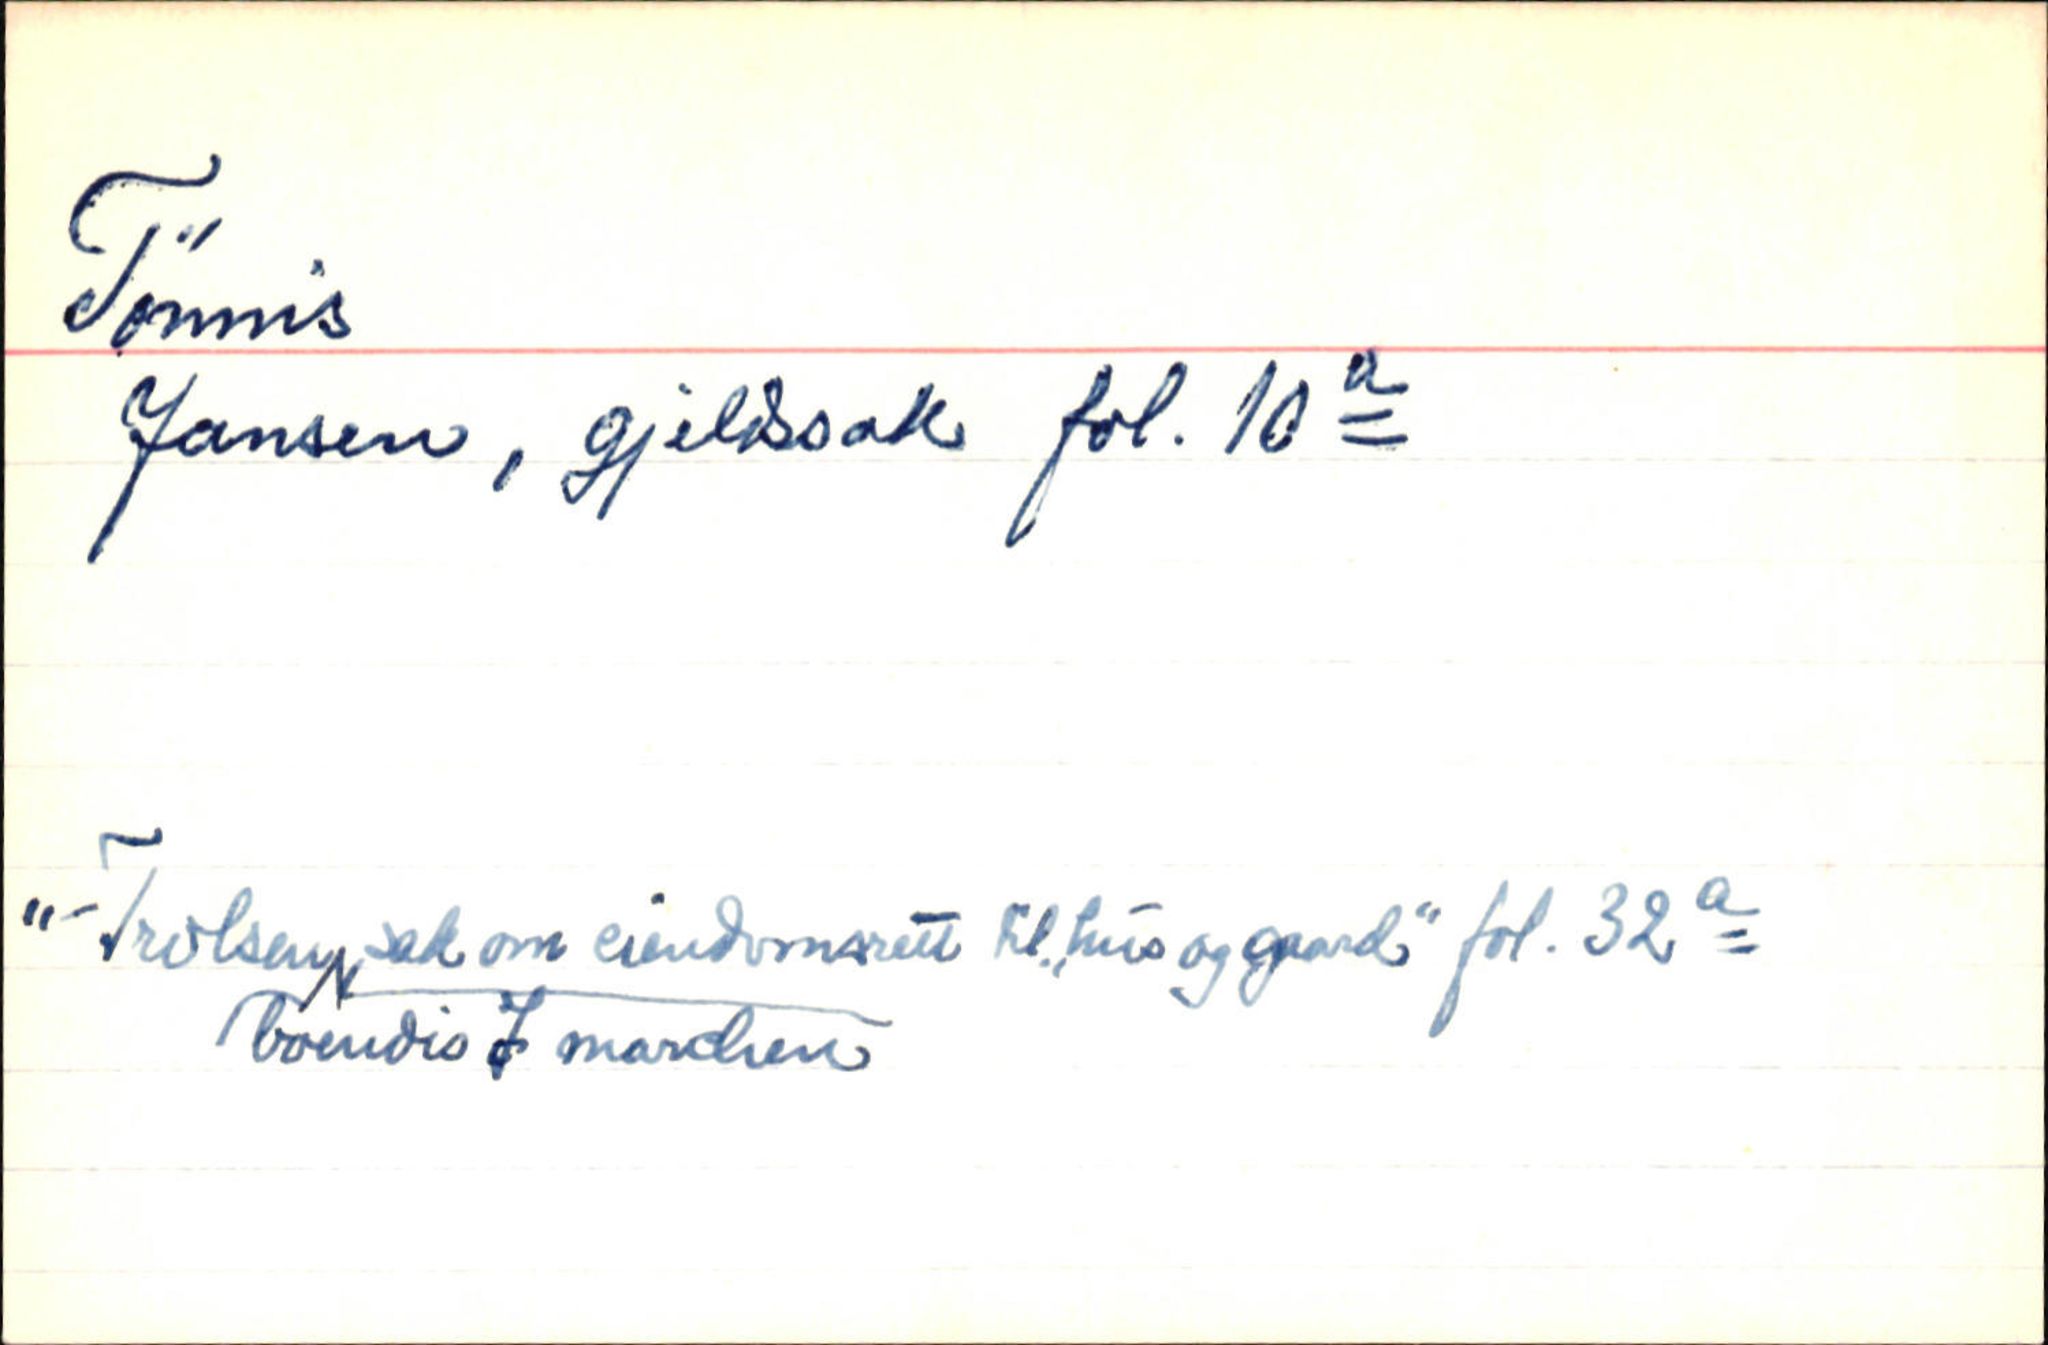 Tönnis
Jansen, gjeldssak fol. 10 a
"- Trolsen, sak om eiendomsrett til „hus og gaard“ fol. 32 a
boendis J marchen